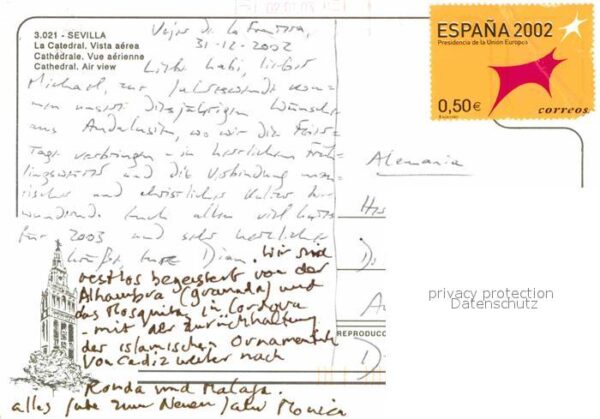 3.021 - SEVILLA
La Catedral. Vista aérea
Cathédrale. Vue aérienne
Cathedral. Air view
Vejer de la Frontera,
31-12-2002
Liebe Gabi, lieber
Michael, zur Jahreswende kom-
men unsere diesjährigen Wünsche
aus Andalusien, wo wir die Feier-
Tage verbringen - in herrlichem Früh-
lingswetter und die Verbindung mau-
rischer und christlicher Kultur be-
wundernd. Euch allen viel Gutes
für 2003 und sehr herzliche
Grüße, Eure
Wir sind
restlos begeistert von der
Alhambra (Granada) und
das Mosquita in Cordova
- mit der Zurückhaltung
der islamischen Ornamentik
Von Cadiz weiter nach
Ronda und Malaga.
alles Gute zum Neuen Jahr Monica
ESPAÑA 2002
Presidencia de la Unión Europea
0,50 €
correos
Alemania
privacy protection
Datenschutz
REPRODUCC